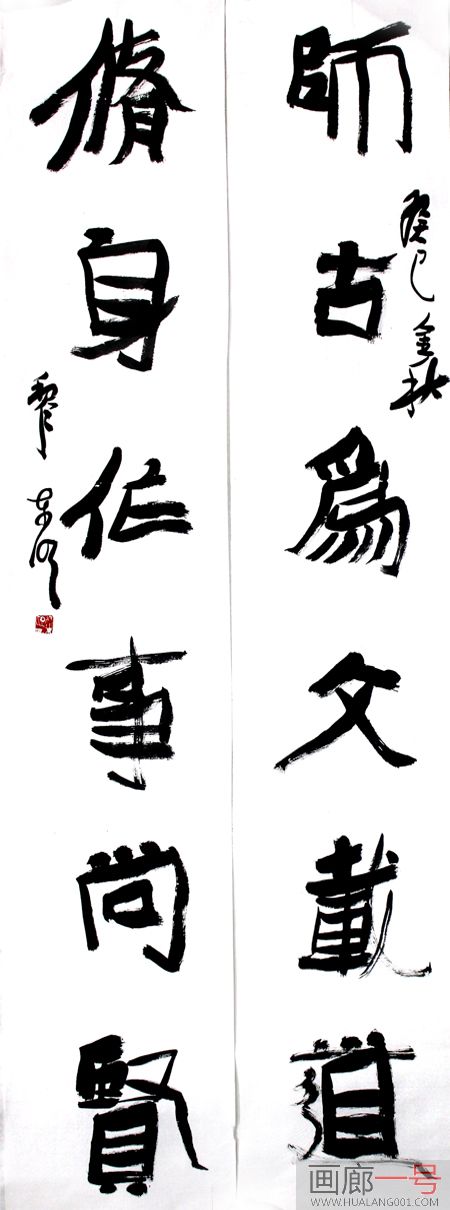 師古爲文載道
癸巳金秋
脩身作事尚賢
画廊一号
WWW.HUALANG001.COM